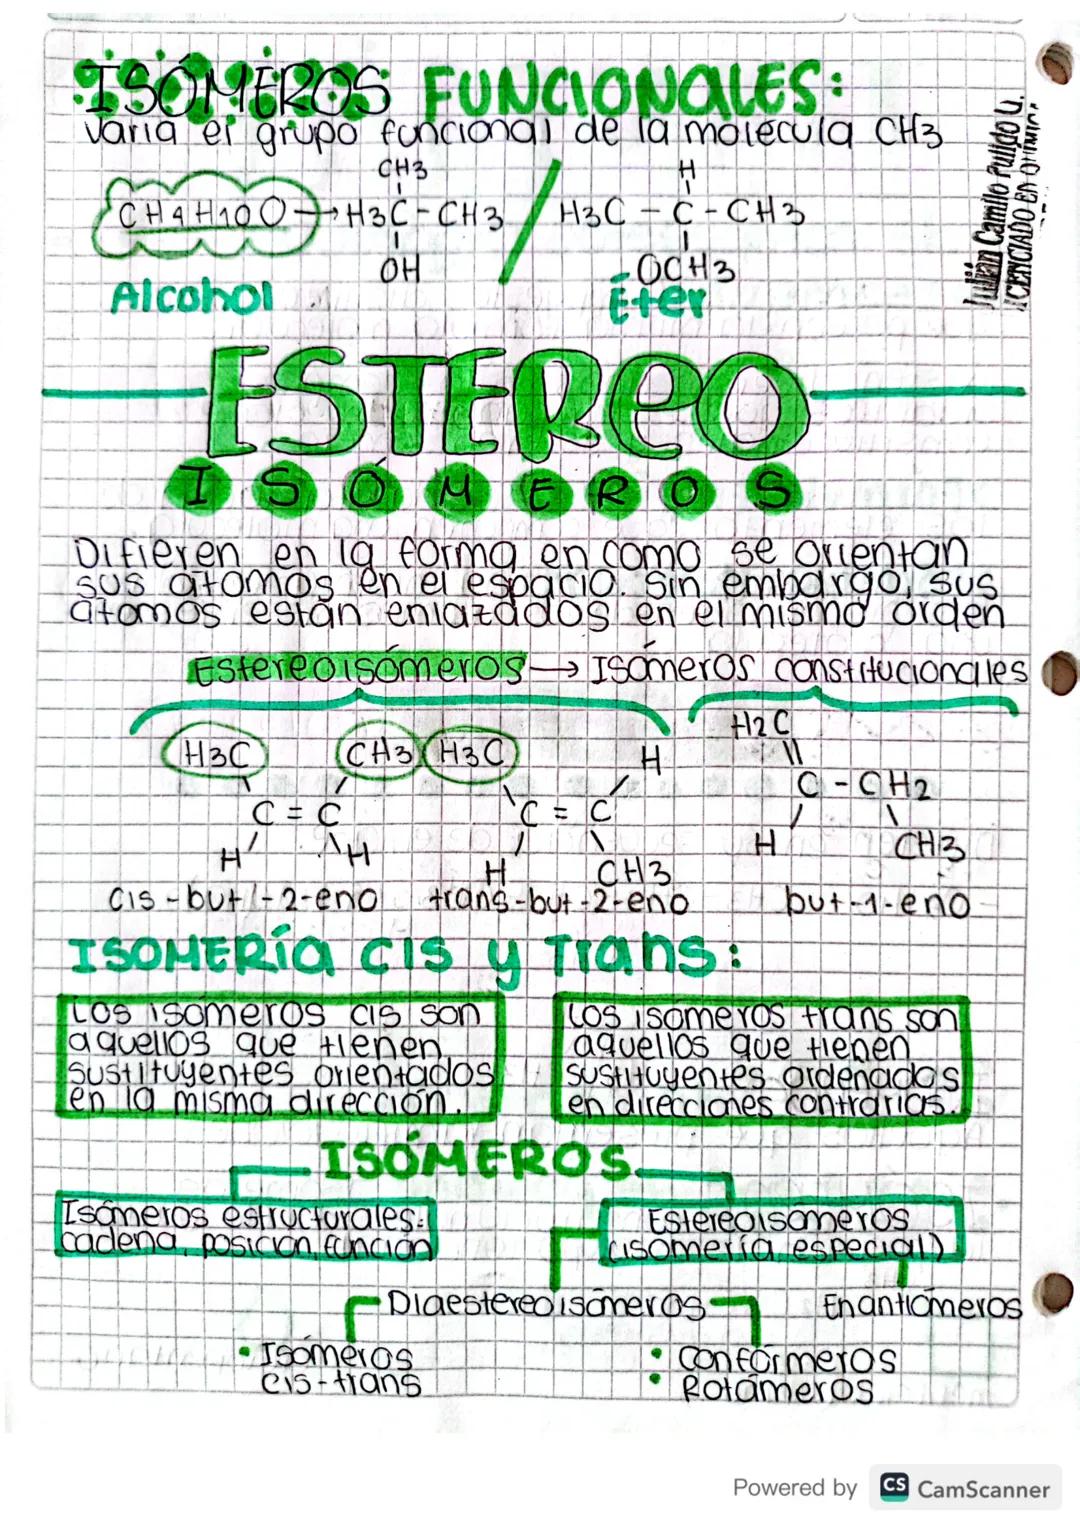 ISÓMEROS FUNCIONALES:
varía el grupo funcional de la molécula CH3
CH3
H
CH4H10O → H3C - C - CH3 / H3C - C - CH3
OH
OCH3
Alcohol
Éter
Julián Camilo Pulido U.
LICENCIADO EN QUÍMICA
ESTEREO
ISÓMEROS
Difieren en la forma en como se orientan
sus átomos en el espacio. Sin embargo, sus
átomos están enlazados en el mismo orden
Estereoisómeros → Isómeros constitucionales
H3C CH3 H3C H H2C
C = C C = C C - CH2
H H H CH3 H CH3
cis-but-2-eno trans-but-2-eno but-1-eno
ISOMERÍA CIS y Trans:
Los isómeros cis son
aquellos que tienen
sustituyentes orientados
en la misma dirección.
Los isómeros trans son
aquellos que tienen
sustituyentes ordenados
en direcciones contrarias.
ISÓMEROS
Isómeros estructurales:
cadena, posición, función
Estereoisómeros
(isomería especial)
Diaestereoisómeros
Enantiómeros
• Isómeros
cis-trans
• Confórmeros
• Rotámeros
Powered by CS CamScanner